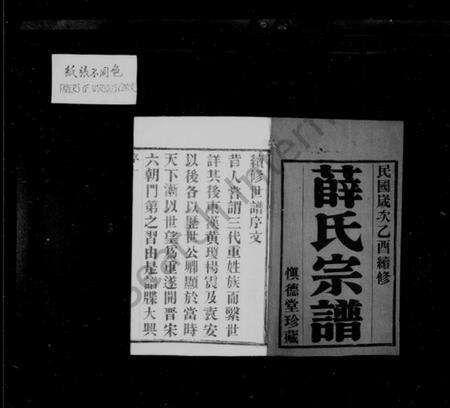 紙張不同色
PAPERS OF VARIOUS COLOR
民國歲次乙酉續修
薛氏宗譜
慎德堂珍藏
續修世譜序文
昔人嘗謂三代重姓族而繫世
詳其後東漢黃瓊楊震及袁安
以後各以歷世公卿顯於當時
天下漸以世望為重遂開晉宋
六朝門第之習由是譜牒大興